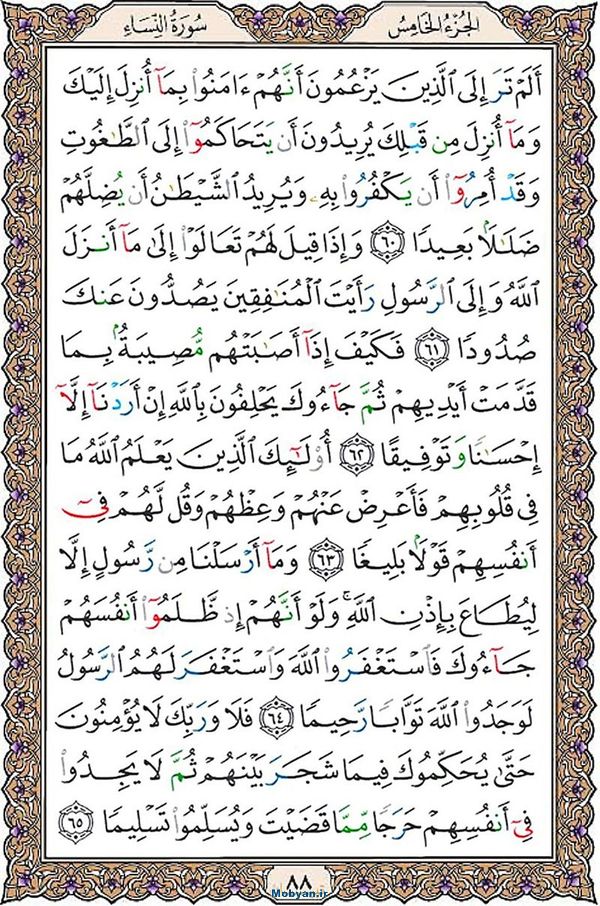 الجُزءُ الخَامِسُ
سُورَةُ النِّسَاءِ
أَلَمْ تَرَ إِلَى ٱلَّذِينَ يَزْعُمُونَ أَنَّهُمْ ءَامَنُوا۟ بِمَآ أُنزِلَ إِلَيْكَ
وَمَآ أُنزِلَ مِن قَبْلِكَ يُرِيدُونَ أَن يَتَحَاكَمُوٓا۟ إِلَى ٱلطَّٰغُوتِ
وَقَدْ أُمِرُوٓا۟ أَن يَكْفُرُوا۟ بِهِۦ وَيُرِيدُ ٱلشَّيْطَٰنُ أَن يُضِلَّهُمْ
ضَلَٰلًۢا بَعِيدًا ٦٠ وَإِذَا قِيلَ لَهُمْ تَعَالَوْا۟ إِلَىٰ مَآ أَنزَلَ
ٱللَّهُ وَإِلَى ٱلرَّسُولِ رَأَيْتَ ٱلْمُنَٰفِقِينَ يَصُدُّونَ عَنكَ
صُدُودًا ٦١ فَكَيْفَ إِذَآ أَصَٰبَتْهُم مُّصِيبَةٌۢ بِمَا
قَدَّمَتْ أَيْدِيهِمْ ثُمَّ جَآءُوكَ يَحْلِفُونَ بِٱللَّهِ إِنْ أَرَدْنَآ إِلَّآ
إِحْسَٰنًا وَتَوْفِيقًا ٦٢ أُو۟لَٰٓئِكَ ٱلَّذِينَ يَعْلَمُ ٱللَّهُ مَا
فِى قُلُوبِهِمْ فَأَعْرِضْ عَنْهُمْ وَعِظْهُمْ وَقُل لَّهُمْ فِىٓ
أَنفُسِهِمْ قَوْلًۢا بَلِيغًا ٦٣ وَمَآ أَرْسَلْنَا مِن رَّسُولٍ إِلَّا
لِيُطَاعَ بِإِذْنِ ٱللَّهِ ۚ وَلَوْ أَنَّهُمْ إِذ ظَّلَمُوٓا۟ أَنفُسَهُمْ
جَآءُوكَ فَٱسْتَغْفَرُوا۟ ٱللَّهَ وَٱسْتَغْفَرَ لَهُمُ ٱلرَّسُولُ
لَوَجَدُوا۟ ٱللَّهَ تَوَّابًا رَّحِيمًا ٦٤ فَلَا وَرَبِّكَ لَا يُؤْمِنُونَ
حَتَّىٰ يُحَكِّمُوكَ فِيمَا شَجَرَ بَيْنَهُمْ ثُمَّ لَا يَجِدُوا۟
فِىٓ أَنفُسِهِمْ حَرَجًا مِّمَّا قَضَيْتَ وَيُسَلِّمُوا۟ تَسْلِيمًا ٦٥
٨٨
Mobyan.ir